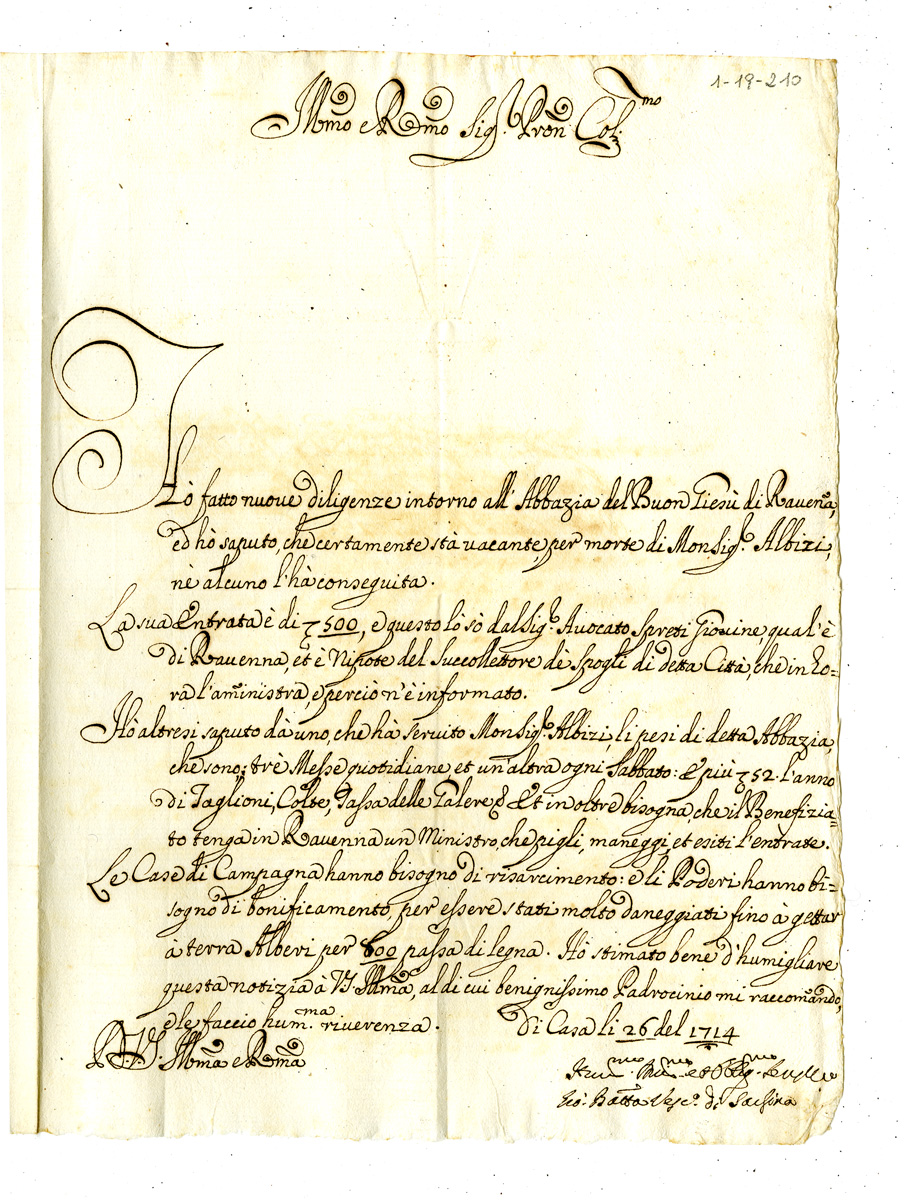 1-19-210
Ill.mo e R.mo Sig.r Pron Col.mo
Hò fatto nuove diligenze intorno all' Abbazia del Buon Giesù di Ravena,
ed hò saputo, che certamente stà vacante per morte di Monsig.r Albizi,
nè alcuno l'hà conseguita.
La sua Entrata è di 500, e questo lò sò dal Sig.r Avocato Spreti Giovine, qual'è
di Ravenna, et è Nipote del Succollettore dè Spogli di detta Città, che in ho=
ra l'aministra, e perciò n'è informato.
Hò altresi saputo dà uno, che hà servito Monsig.r Albizi, li pesi di detta Abbazia,
che sono; trè Messe quotidiane, et un'altra ogni Sabbato: E più 52 l'anno
di Taglioni, Colte, Tassa delle Galere, Et in oltre bisogna, che il Benefizia=
to tenga in Ravenna un Ministro, che pigli, maneggi, et esiti l'entrate.
Le Case di Campagna hanno bisogno di risarcimento: e li Poderi hanno bi=
sogno di bonificamento, per essere stati molto daneggiati fino à gettar
à terra Alberi per 600 passa di legna. Hò stimato bene d'humigliare
questa notizia à V.S. Ill.ma, al di cui benignissimo Padrocinio mi raccomando,
e le faccio hum.ma riverenza. Di Casa li 26 del 1714
D. V.S. Ill.ma e R.ma
et Obblig.mo
Gio: Batta Vesc.o di Sarsina